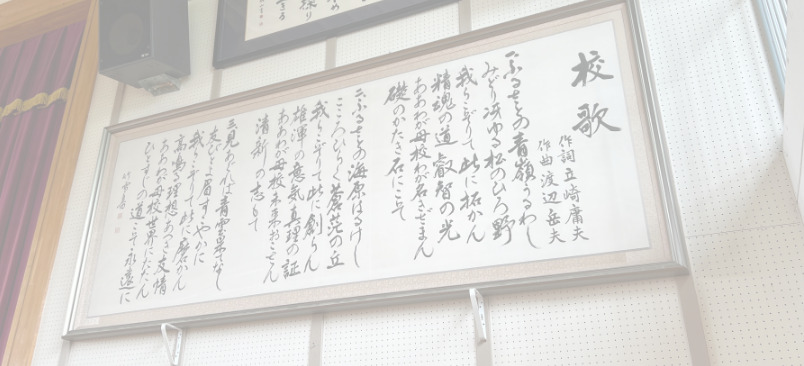 校歌
作詞 立崎庸夫
作曲 渡辺岳夫
一、ふるさとの青嶺うるわし
みどり冴ゆる松のひろ野
我らこぞりて此に拓かん
精魂の道 叡智の光
ああわが母校わが名きざまん
礎のかたき石にこそ
二、ふるさとの海原はるけし
こころひらく蒼茫の丘
我らこぞりて此に創らん
雄渾の意気 真理の証
ああわが母校 未来おこさん
清新の志もて
三、見あぐれば青雲果てなし
友びとよ眉すこやかに
我らこぞりて此に磨かん
高鳴る理想 あつき友情
ああわが母校 世界にになわん
ひとすじの道こそ永遠に